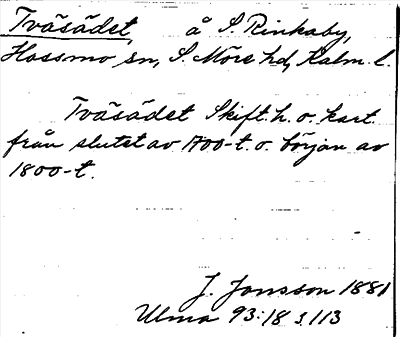 Tväsädet, å S. Rinkaby,
Hossmo sn, S. Möre hd, Kalm. l.
Tväsädet Skift. h. o. kart.
från slutet av 1700-t. o. början av
1800-t.
J. Jonsson 1881
Ulma 93:18 s. 113